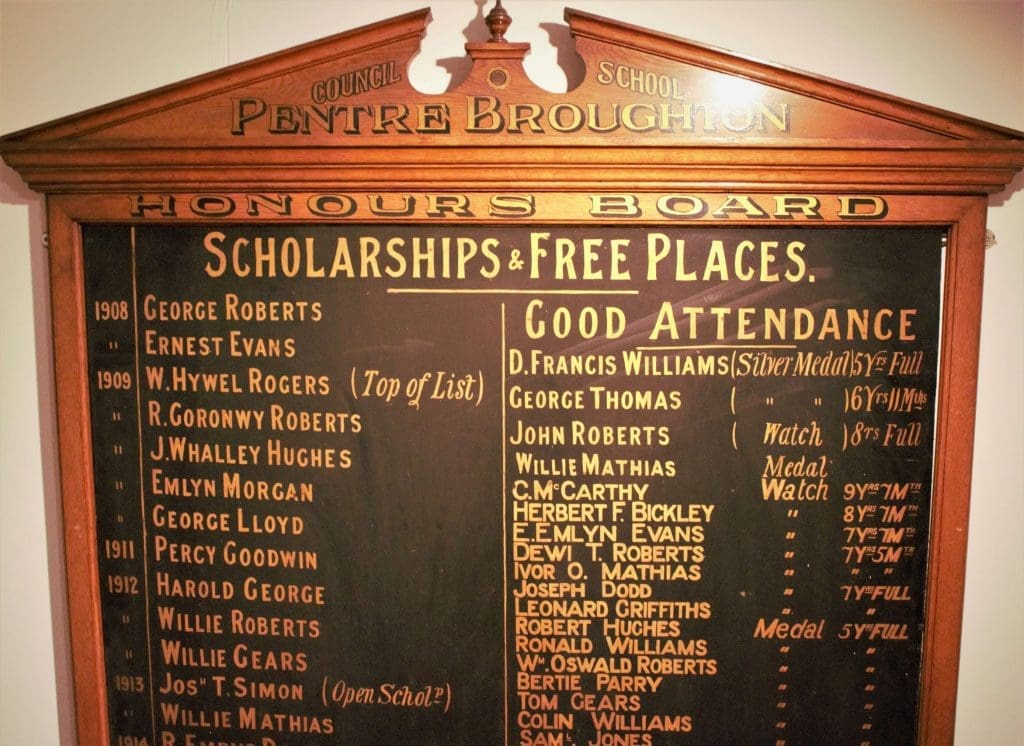 COUNCIL SCHOOL
PENTRE BROUGHTON
HONOURS BOARD
SCHOLARSHIPS & FREE PLACES.
1908 GEORGE ROBERTS
" ERNEST EVANS
1909 W. HYWEL ROGERS (Top of List)
" R. GORONWY ROBERTS
" J. WHALLEY HUGHES
" EMLYN MORGAN
" GEORGE LLOYD
1911 PERCY GOODWIN
1912 HAROLD GEORGE
" WILLIE ROBERTS
" WILLIE GEARS
1913 JOSH T. SIMON (Open Scholp)
" WILLIE MATHIAS
1914
GOOD ATTENDANCE
D. FRANCIS WILLIAMS (Silver Medal) 5Yrs Full
GEORGE THOMAS ( " " ) 6Yrs 11Mths
JOHN ROBERTS ( Watch ) 8rs Full
WILLIE MATHIAS Medal
C. McCARTHY Watch 9YRS 7MTH
HERBERT F. BICKLEY " 8YRS 7MTH
E. EMLYN EVANS " 7YRS 7MTH
DEWI T. ROBERTS " 7YRS 5MTH
IVOR O. MATHIAS " " "
JOSEPH DODD " 7YRS FULL
LEONARD GRIFFITHS " "
ROBERT HUGHES Medal 5YRS FULL
RONALD WILLIAMS " "
WM. OSWALD ROBERTS " "
BERTIE PARRY " "
TOM GEARS " "
COLIN WILLIAMS " "
SAML JONES " "